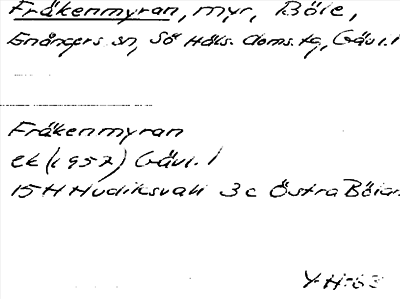 Fräkenmyran, myr, Böle,
Enångers sn, Sö Häls. doms.tg, Gävl. l
Fräkenmyran
ek (1957) Gävl. l
15 H Hudiksvall 3c Östra Böle
Y-H-63